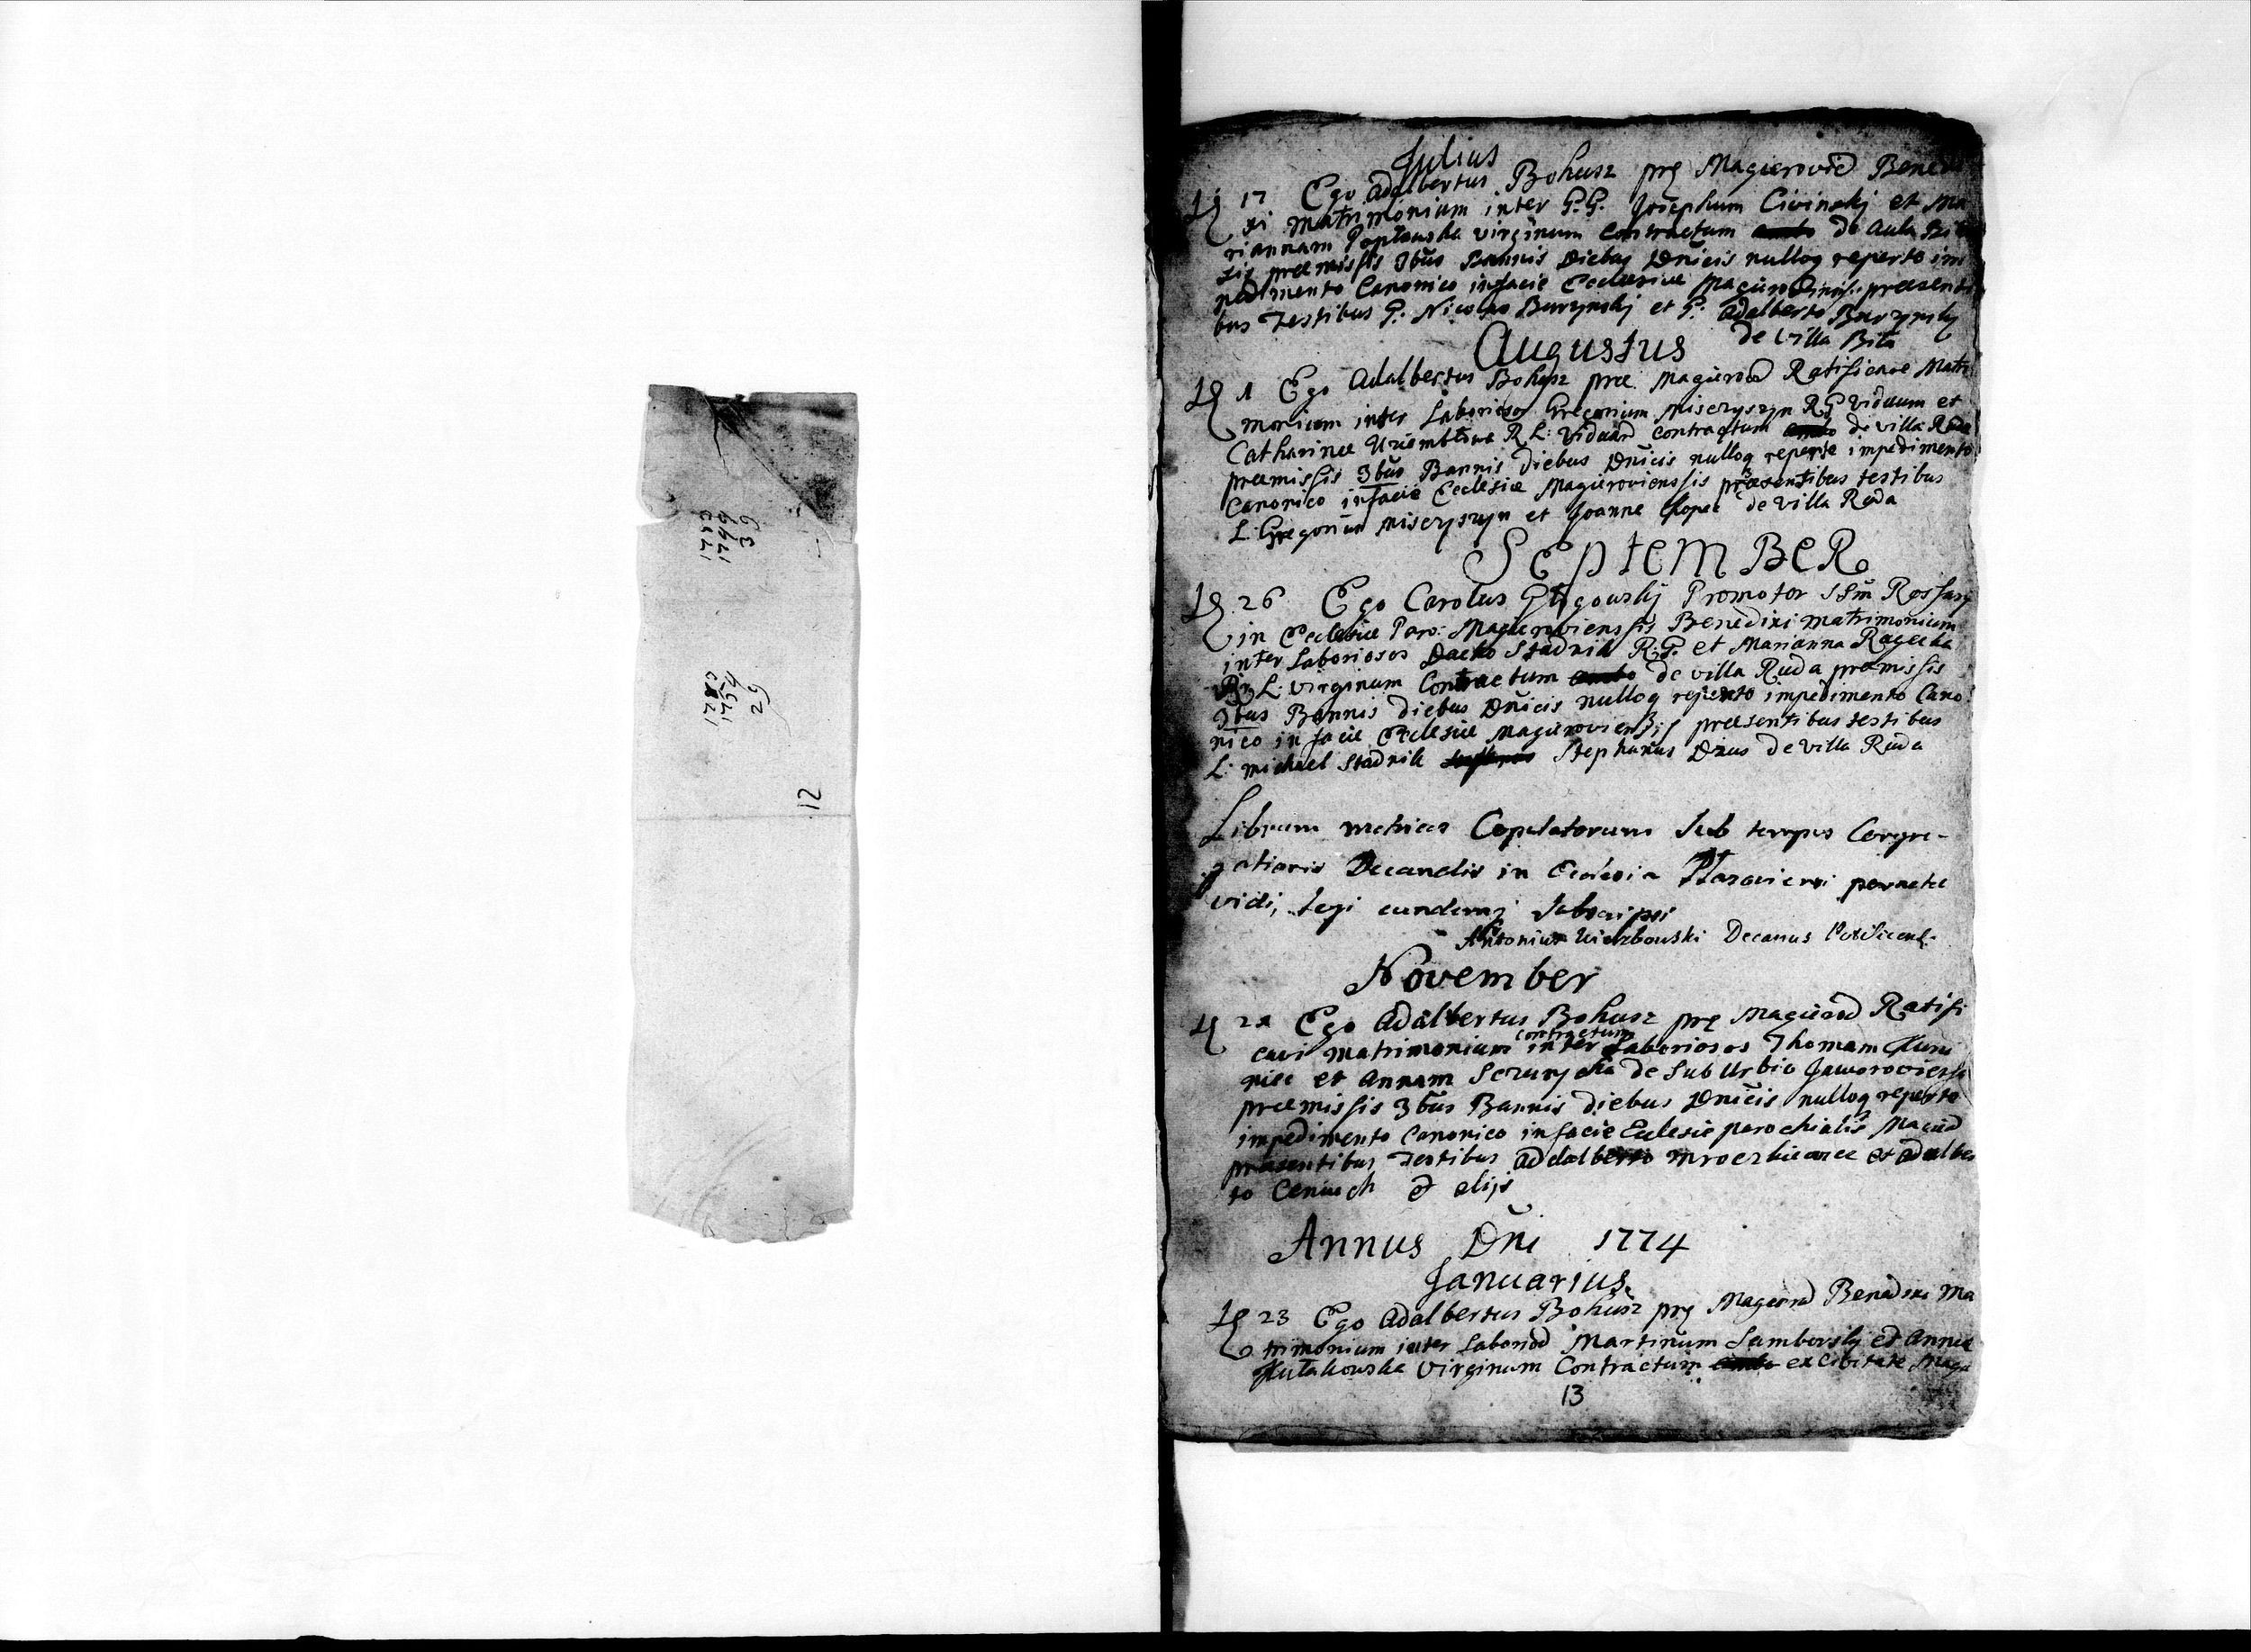 63
1799
1773
62
1754
1782
12
Julius
17 Ego Adalbertus Bohusz prę Magierovid Bened
xi Matrimonium inter G.G. Josephum Civinskj et Ma
riannam Poplawska virginum Contractum de Aula
sis præmissis 3bus Bannis Diebus Dnicis nulloq reperto im
pedimento Canonico in facie Ecclesiæ præsenti
bus Testibus G. Nicolao Burzynskj et G. Adalberto Burzynskj
de Villa Bila
Augustus
1 Ego Adalbertus Bohusz præ Magierod Ratificare Matri
monium inter Laboriosos Gregorium Misczyszyn R G Viduum et
Catharinæ R L: Viduam contractum de villa Ruda
præmissis 3bus Bannis diebus Dnicis nulloq reperto impedimento
Canonico in facie Ecclesiæ Magieroviensis præsentibus testibus
L: Gregorium Misczyszyn et Joanne de Villa Ruda
SEptemBeR
26 Ego Carolus Promotor SSmi Rossarij
in Ecclesiæ Paro: Magieroviensis Benedixi matrimonium
inter Laboriosos Stadnik R: G. et Marianna
L: virginum Contractum ambo de villa Ruda præmissis
3bus Bannis diebus Dnicis nulloq reperto impedimento Cano
nico in facie Ecclesiæ Magieroviensis præsentibus testibus
L: michael Stadnik Stephanus de Villa Ruda
Librum metrices Copulatorum sub tempus Congre-
gationis Decanalis in Ecclesia peractæ
vidi, legi eundemq subscripsi
Antonius Wierzbowski Decanus
November
21 Ego Adalbertus Bohusz prę Magierod Ratifi
contractum
cavi matrimonium inter Laboriosos Thomam
et Annam de Sub Urbio Jaworoviensi
præmissis 3bus Bannis diebus Dnicis nulloq reperto
impedimento Canonico in facie Eclesiæ parochialis
præsentibus Testibus Addalberto et Adalber
to Ceniuch & alijs
Annus Dni 1774
Januarius
23 Ego Adalbertus Bohusz prę Magierod Benedixi Ma
trimonium inter Laboriod Martinum Samborskj et Annæ
Virginum Contractum ambo ex Civitate Mage
13